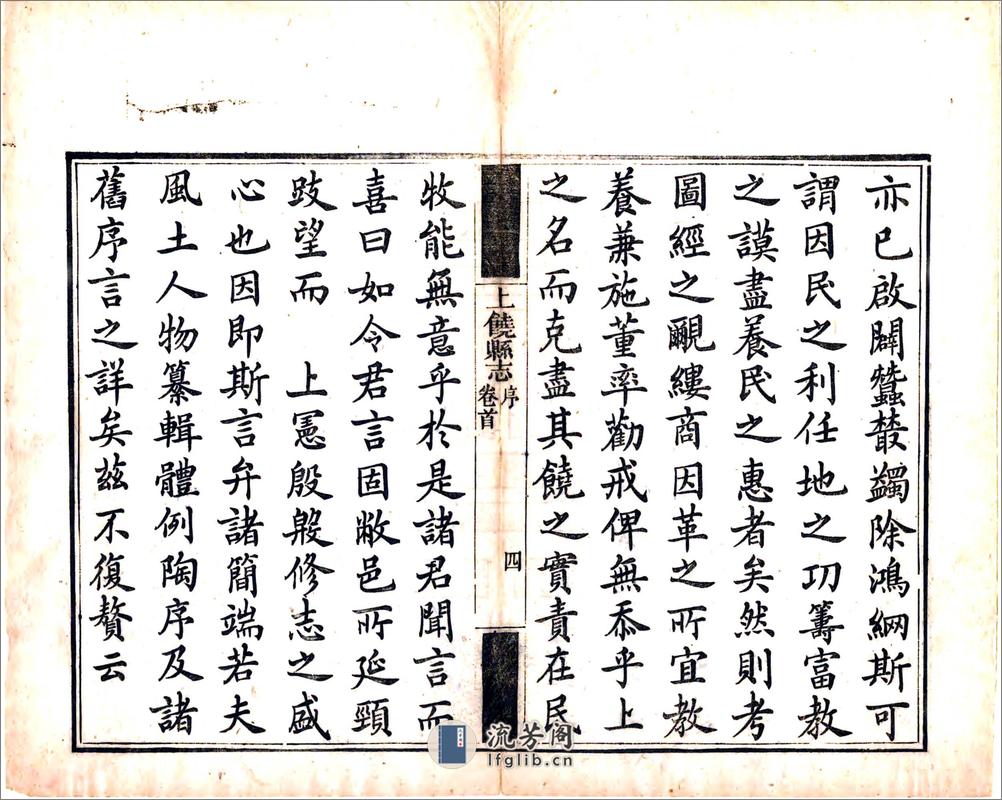 亦已啟闢蠶叢蠲除鴻綱斯可
謂因民之利任地之功籌富教
之謨盡養民之惠者矣然則考
圖經之覼縷商因革之所宜教
養兼施董率勸戒俾無忝乎上
之名而克盡其饒之實責在民
上饒縣志
序
卷首
四
牧能無意乎於是諸君聞言而
喜曰如令君言固敝邑所延頸
跂望而 上憲殷殷修志之盛
心也因即斯言弁諸簡端若夫
風土人物纂輯體例陶序及諸
舊序言之詳矣茲不復贅云
流芳阁
lfglib.cn